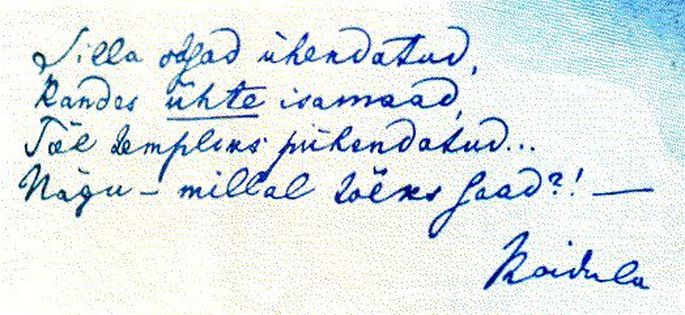 Silla otsad ühendatud,
Kandes ühte isamaad,
Tõe templiks pühendatud...
Nägu – millal tõeks saad?! —
Koidula